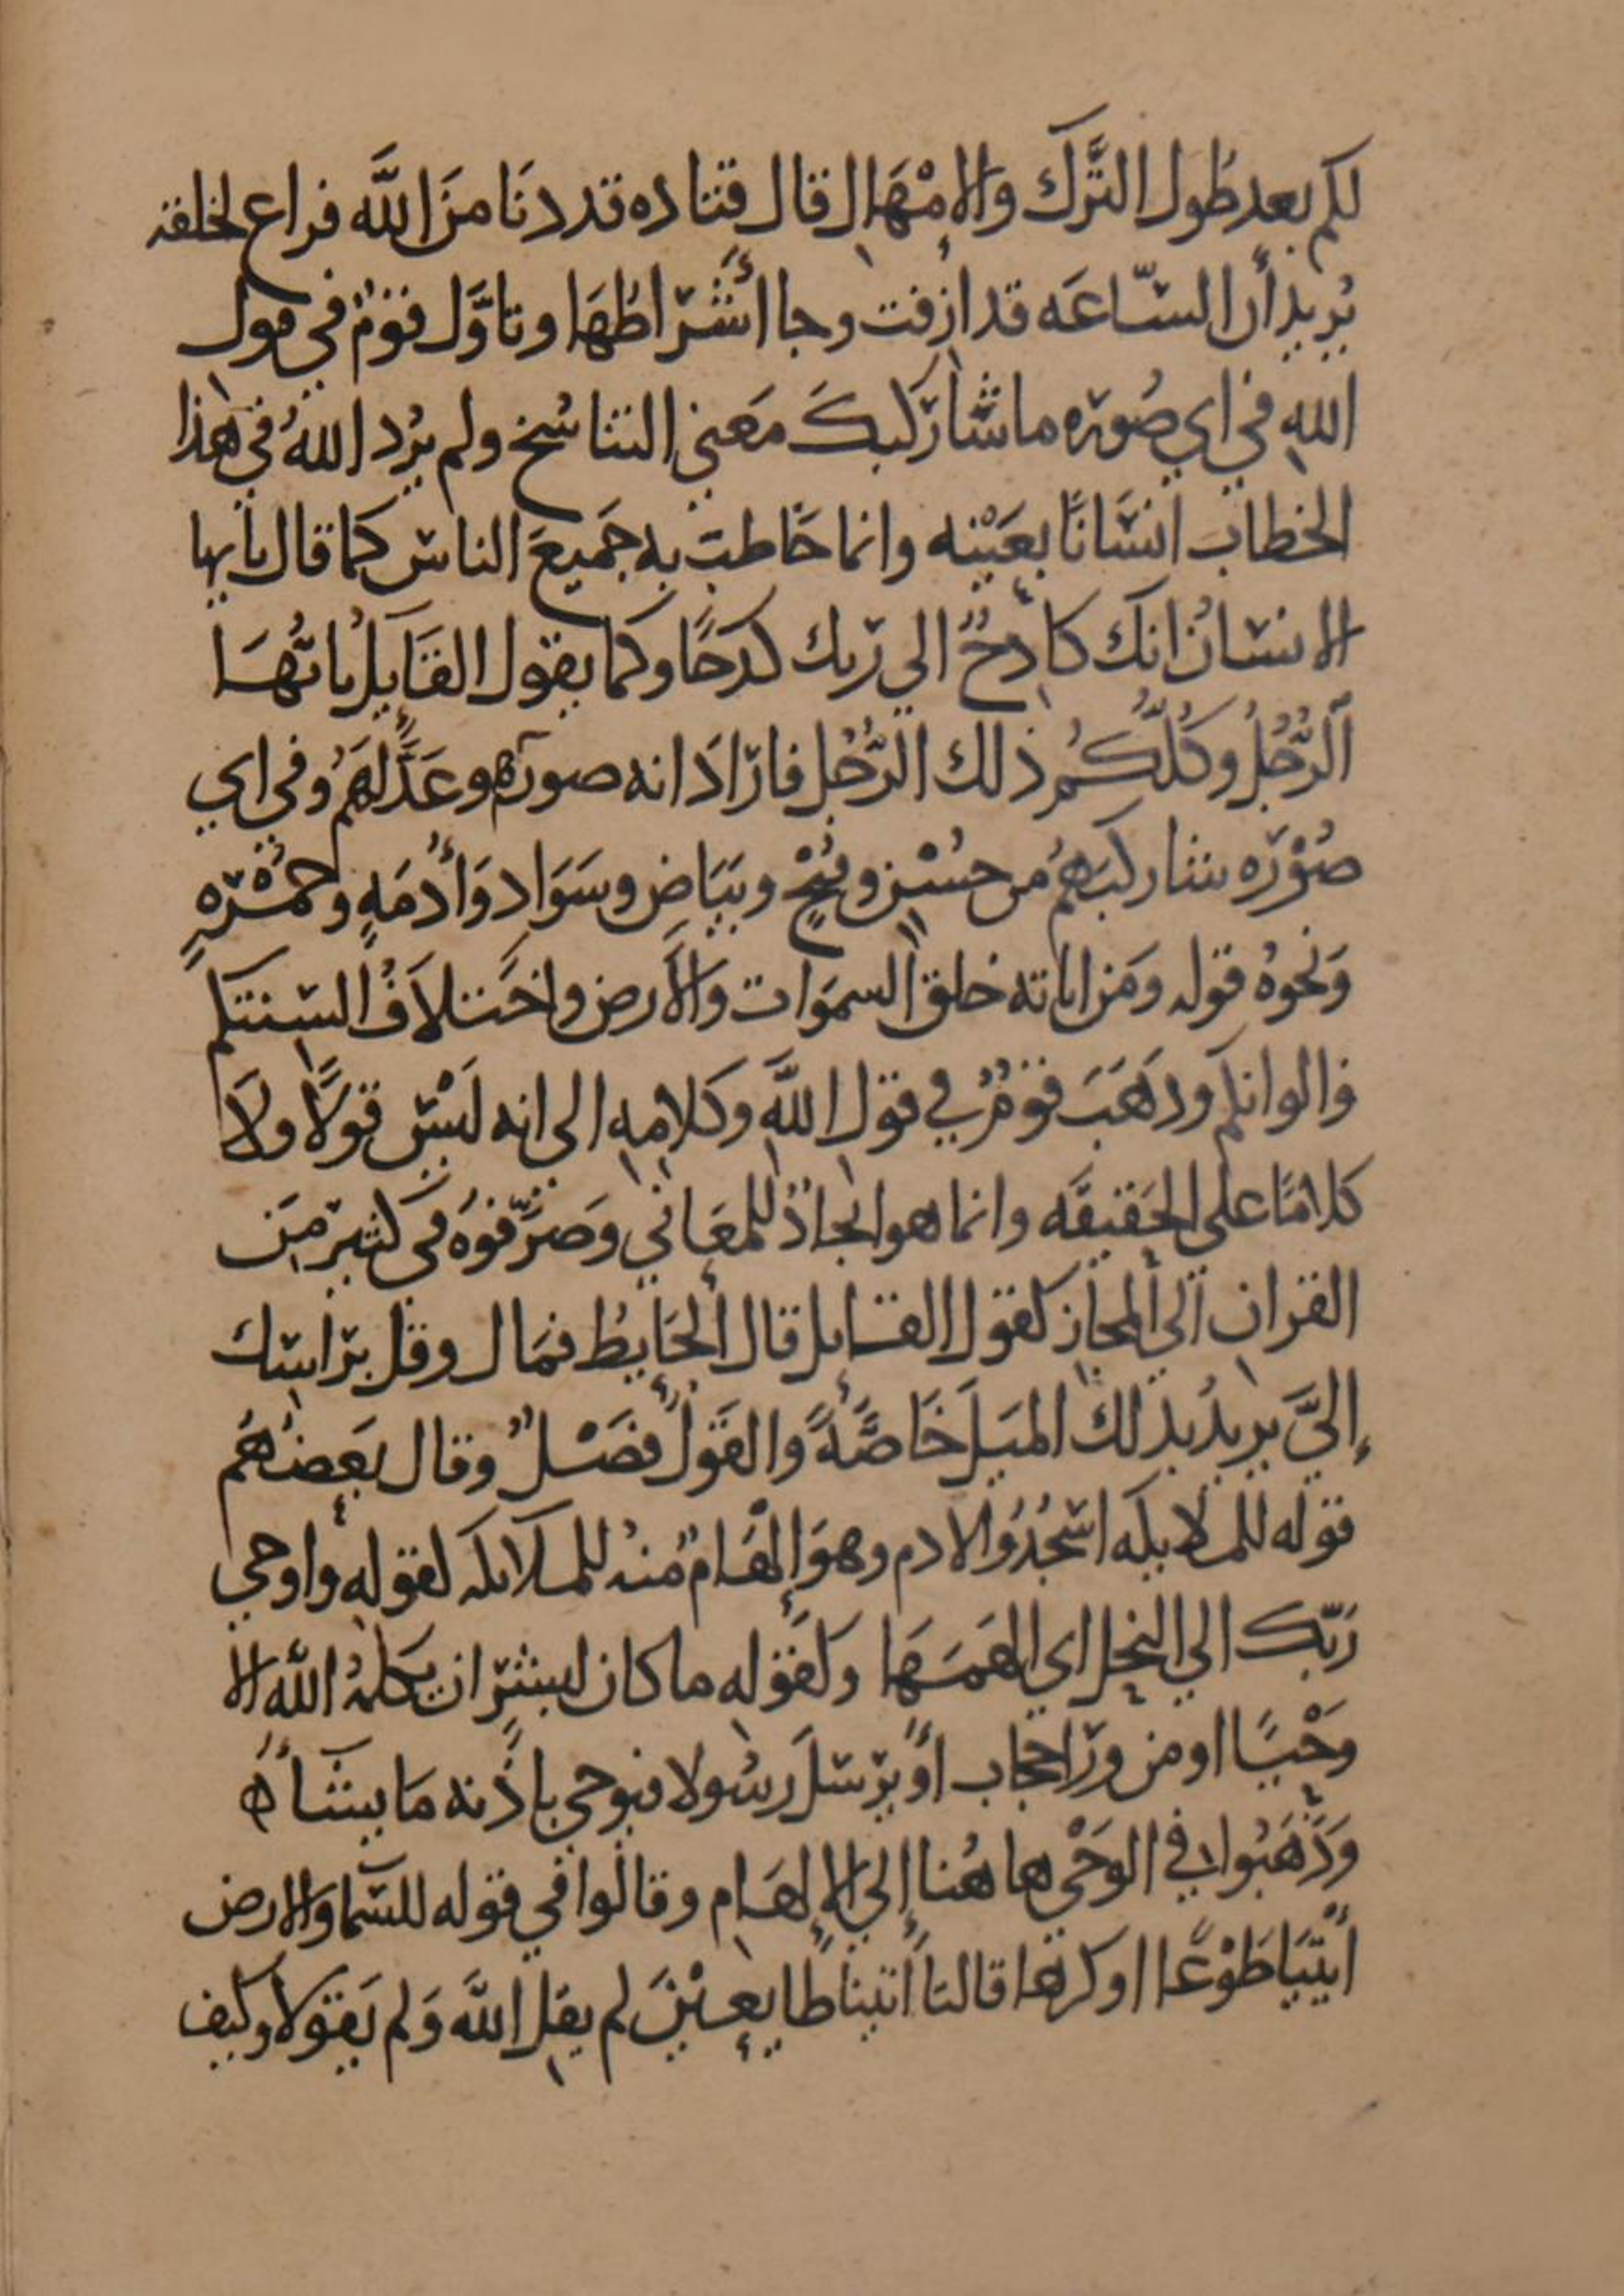 لكم بعد طُول التَّرك والامْهَال قال قتاده قد دنَا منَ اللَّه فراع لخلقه
يُريد أن السّاعَه قد ازفت وجا أشْرَاطُهَا وتاوَّل قومٌ في قول
اللهِ في اي صُورَه ما شَا رَكبكَ مَعني التناسُخ ولم يُرد اللهُ في هَذا
الخطاب انسَانًا بعَيْنه وانما خَاطبَ به جَميعَ الناس كما قال يايها
الانسَانُ انك كادحٌ الي ربك كدحًا وكما يقول القَايلُ يايُّهَا
الرَّجُلُ وكُلّكُم ذلك الرَّجُل فارَادَ انه صورَهم وعَدَّلهَمُ وفي اي
صُوْرَه شا ركبَهُم من حسْن وقُبْحٍ وبيَاض وسَوَاد وَأُدمَهٍ وحمْرَهٍ
وَنحوُه قوله ومَن اياته خلق السموَات والأرض واختلاَفُ السنتكم
والوانكم وذهَبَ قومٌ في قول اللَّهِ وكلامِهِ الي انه ليْسَ قولًا ولا
كلامًا علي الحَقيقَه وانما هو ايجادٌ للمعَاني وَصرَّفوُه في كثيرٍ منَ
القران الي المجاز كقول القايل قال الحَايطُ فمَال وقل برَاسك
إليَّ يريدُ بذلك الميَلَ خَاصَّةً والقَولُ فضَلٌ وقال بعَضهُم
قوله للملايكَه اسْجُدُوا لادم وهوَ إِلهَامٌ منهُ للملايكه كقوله واوحي
رَبّك الي النحل اي الهمَهَا وكقوله ما كان لبشَرٍ ان يكلمهُ اللَّه الا
وَحْيًا او من ورَا حجاب أو يرْسلَ رسُولا فيوحي باذنه مَا يشَاءُ
وَذَهَبُوا في الوَحْي هاهُنا إلي الإلهَام وقالوا في قوله للسّما والارض
أيْتيَا طَوْعًا او كرها قالتا اتيناَ طايعيْنَ لم يقل اللَّهُ وَلم يَقولا وكيف